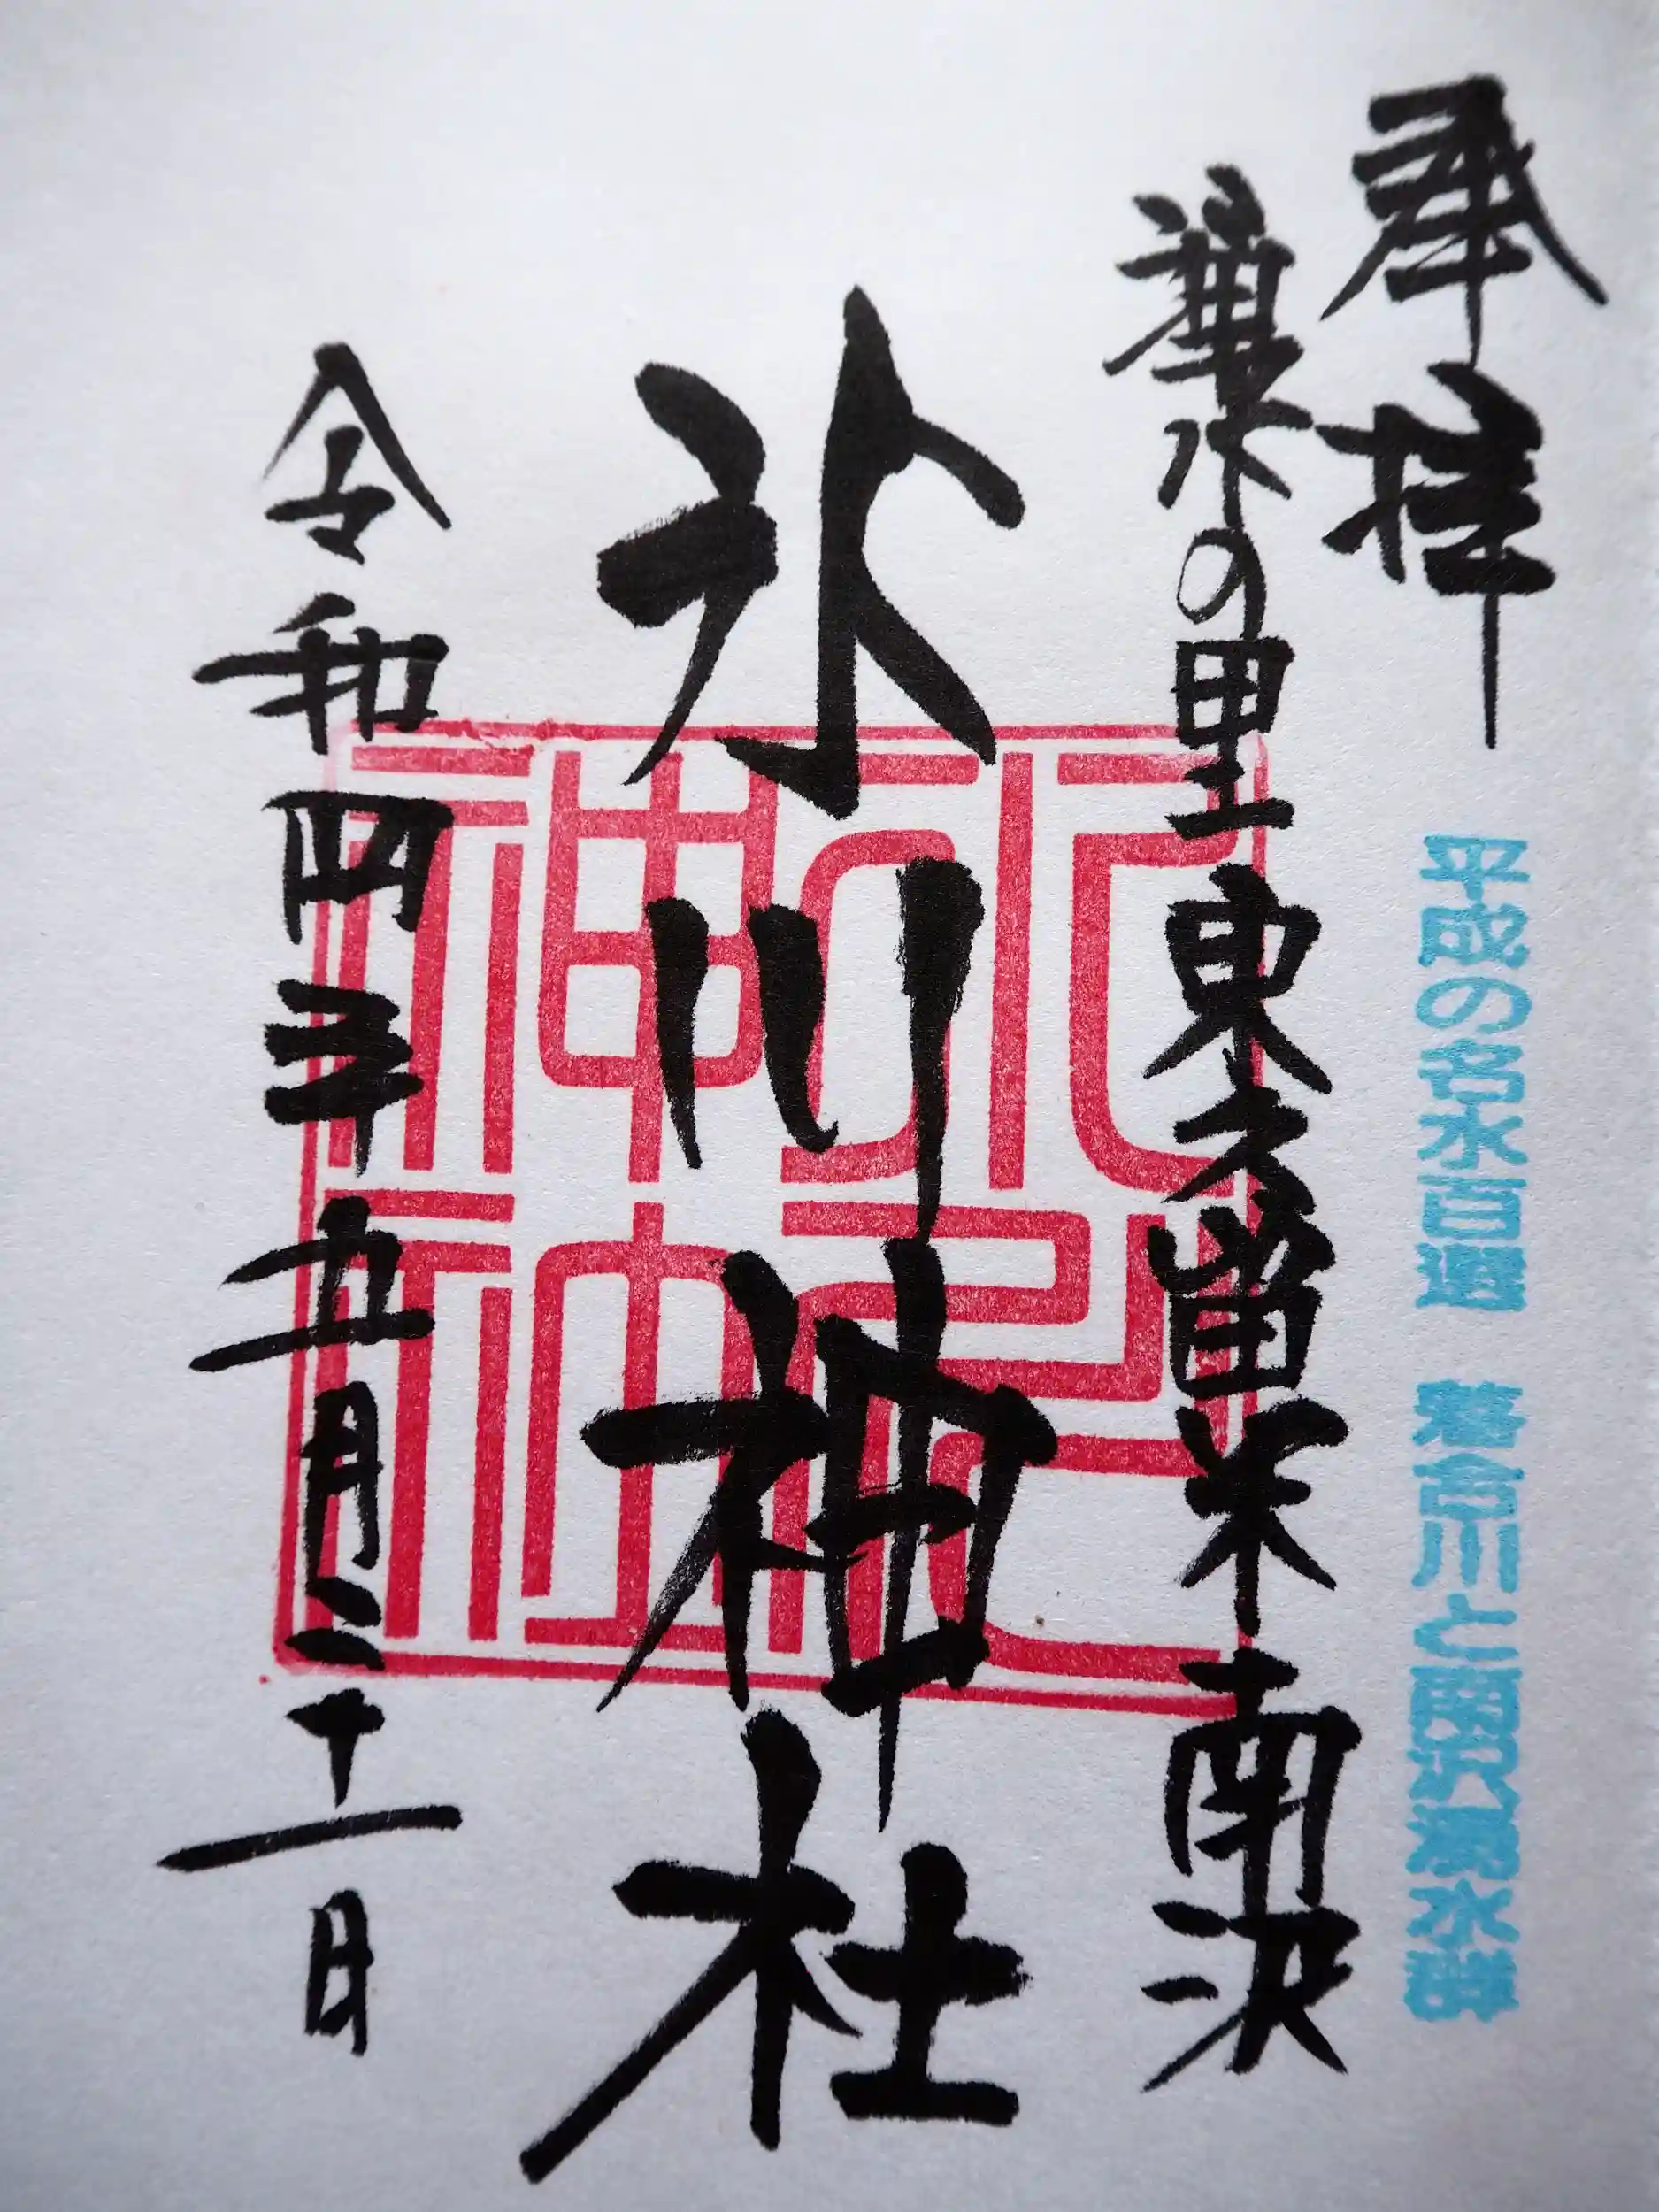 奉拝
平成の名水百選 落合川と南沢湧水群
湧水の里 東久留米南沢
氷川神社
令和四年五月二十一日